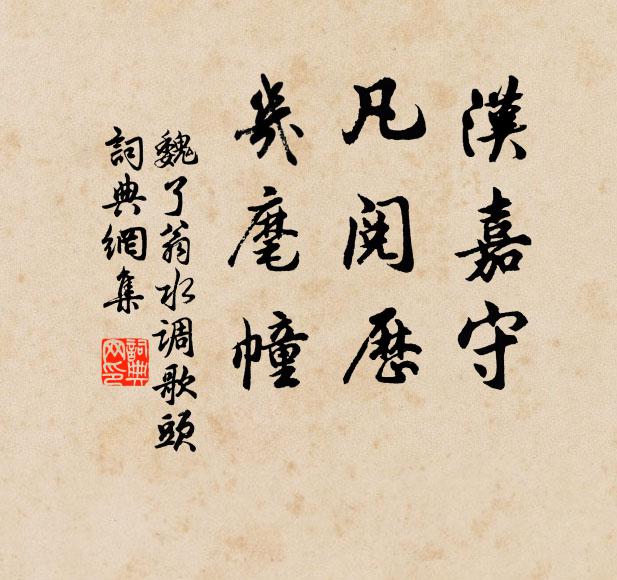 漢嘉守
凡閱歷
幾麾幢
魏了翁水调歌頭
詞典網集
詞典网印